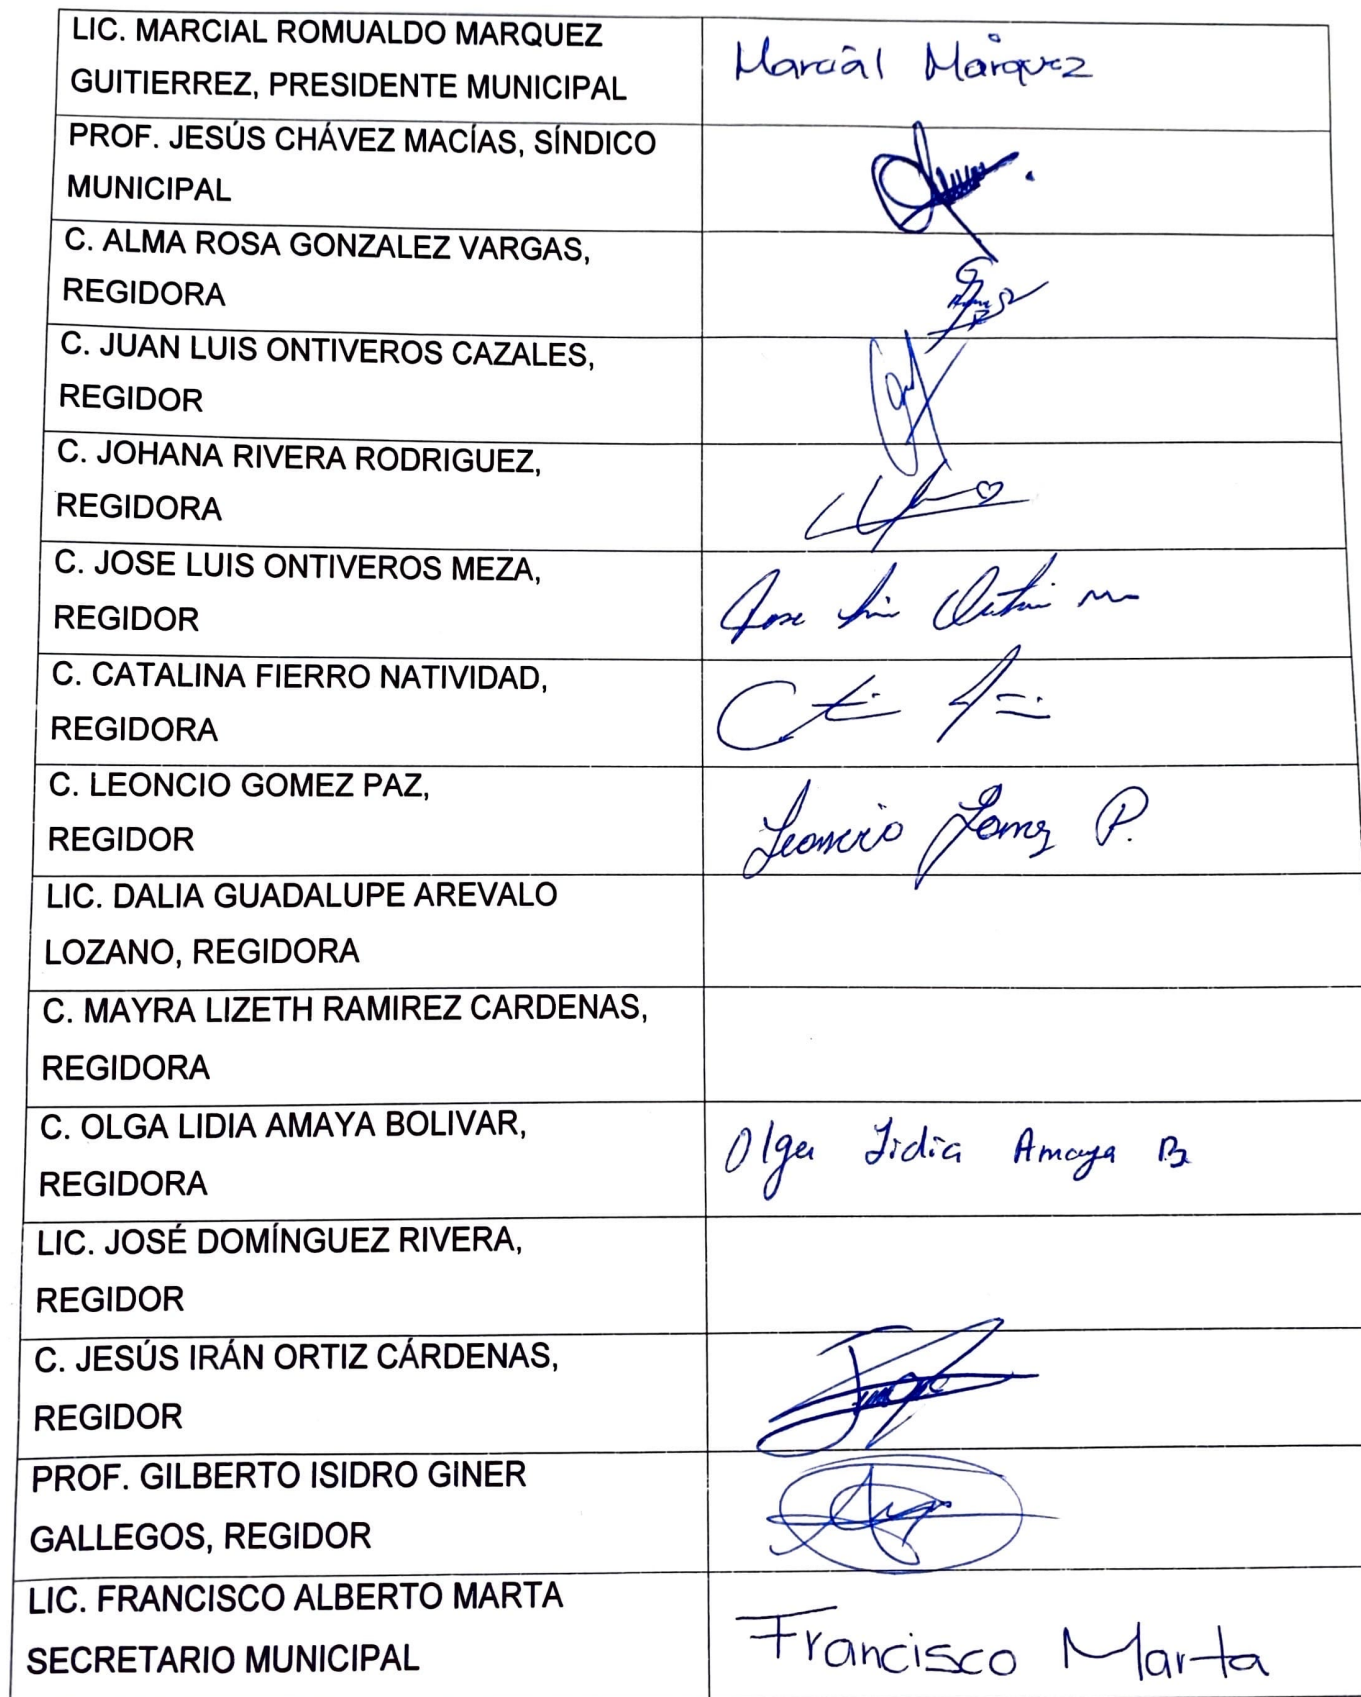 LIC. MARCIAL ROMUALDO MARQUEZ
GUITIERREZ, PRESIDENTE MUNICIPAL
Marcial Marquez
PROF. JESÚS CHÁVEZ MACÍAS, SÍNDICO
MUNICIPAL
C. ALMA ROSA GONZALEZ VARGAS,
REGIDORA
C. JUAN LUIS ONTIVEROS CAZALES,
REGIDOR
C. JOHANA RIVERA RODRIGUEZ,
REGIDORA
C. JOSE LUIS ONTIVEROS MEZA,
REGIDOR
Jose Luis
C. CATALINA FIERRO NATIVIDAD,
REGIDORA
C. LEONCIO GOMEZ PAZ,
REGIDOR
Leoncio Gomez P.
LIC. DALIA GUADALUPE AREVALO
LOZANO, REGIDORA
C. MAYRA LIZETH RAMIREZ CARDENAS,
REGIDORA
C. OLGA LIDIA AMAYA BOLIVAR,
REGIDORA
Olga Lidia Amaya B
LIC. JOSÉ DOMÍNGUEZ RIVERA,
REGIDOR
C. JESÚS IRÁN ORTIZ CÁRDENAS,
REGIDOR
PROF. GILBERTO ISIDRO GINER
GALLEGOS, REGIDOR
LIC. FRANCISCO ALBERTO MARTA
SECRETARIO MUNICIPAL
Francisco Marta